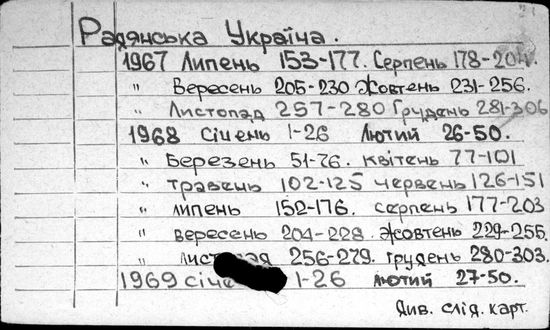 Радянська Україна.
1967 Липень 153-177. Серпень 178-204.
" Вересень 205-230 Жовтень 231-256.
" Листопад 257-280 Грудень 281-306
1968 Січень 1-26 Лютий 26-50.
" Березень 51-76. квітень 77-101
" травень 102-125 червень 126-151
" липень 152-176. серпень 177-203
" вересень 204-228. Жовтень 229-255.
" 256-279. грудень 280-303.
1969 1-26 лютий 27-50.
Див. слід. карт.